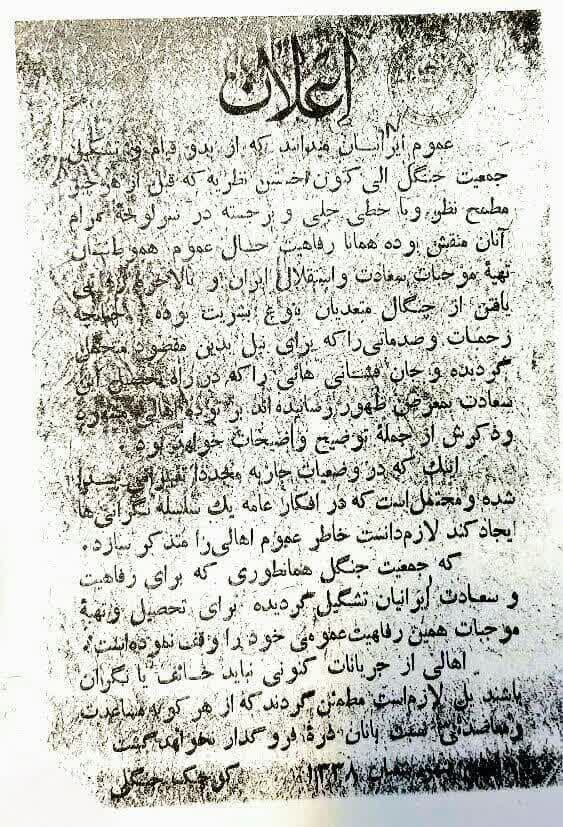 اعلان
عموم ایرانیان میدانند که از بدو قیام و تشکیل
جمعیت جنگل الی کنون احسن نظریه که قبل از هر چیز
مطمح نظر و با خطی جلی و برجسته در سرلوحهٔ مرام
آنان منقش بوده همانا رفاهیت حال عموم هموطنان
تهیهٔ موجبات سعادت و استقلال ایران و بالاخره رهائی
یافتن از چنگال متعدیان بنوع بشریت بوده چنانچه
زحمات و صدماتی را که برای نیل بدین مقصود متحمل
گردیده و جان فشانی هائی را که در راه تحصیل این
سعادت بمعرض ظهور رسانیده‌اند بر توده اهالی
و ذکرش از جملهٔ توضیح واضحات خواهد بود
اینک که در وضعیات جاریه مجدداً تغییراتی پیدا
شده و محتمل است که در افکار عامه یك سلسله نگرانی‌ها
ایجاد کند لازم دانست خاطر عموم اهالی را متذکر سازد.
که جمعیت جنگل همانطوری که برای رفاهیت
و سعادت ایرانیان تشکیل گردیده برای تحصیل و تهیهٔ
موجبات همین رفاهیت عمومی خود را وقف نموده است.
اهالی از جریانات کنونی نباید خائف یا نگران
باشند بل لازم است مطمئن گردند که از هر گونه مساعدت
نسبت بانان ذرهٔ فروگذار نخواهد گشت
۱۳۳۸ کوچک جنگلی